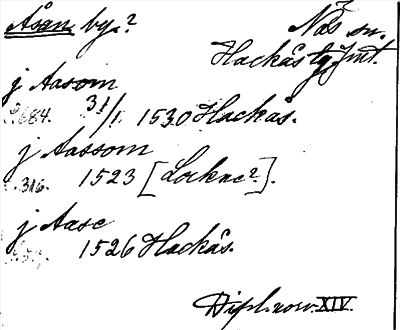 Åsan by.? Näs sn.
Hackås tg Jmt.
j Aasom
684. 31/1 1530 Hackås.
j Aassom
316. 1523 [Lockne?].
j Aase
1526 Hackås.
Dipl. norv. XIV.